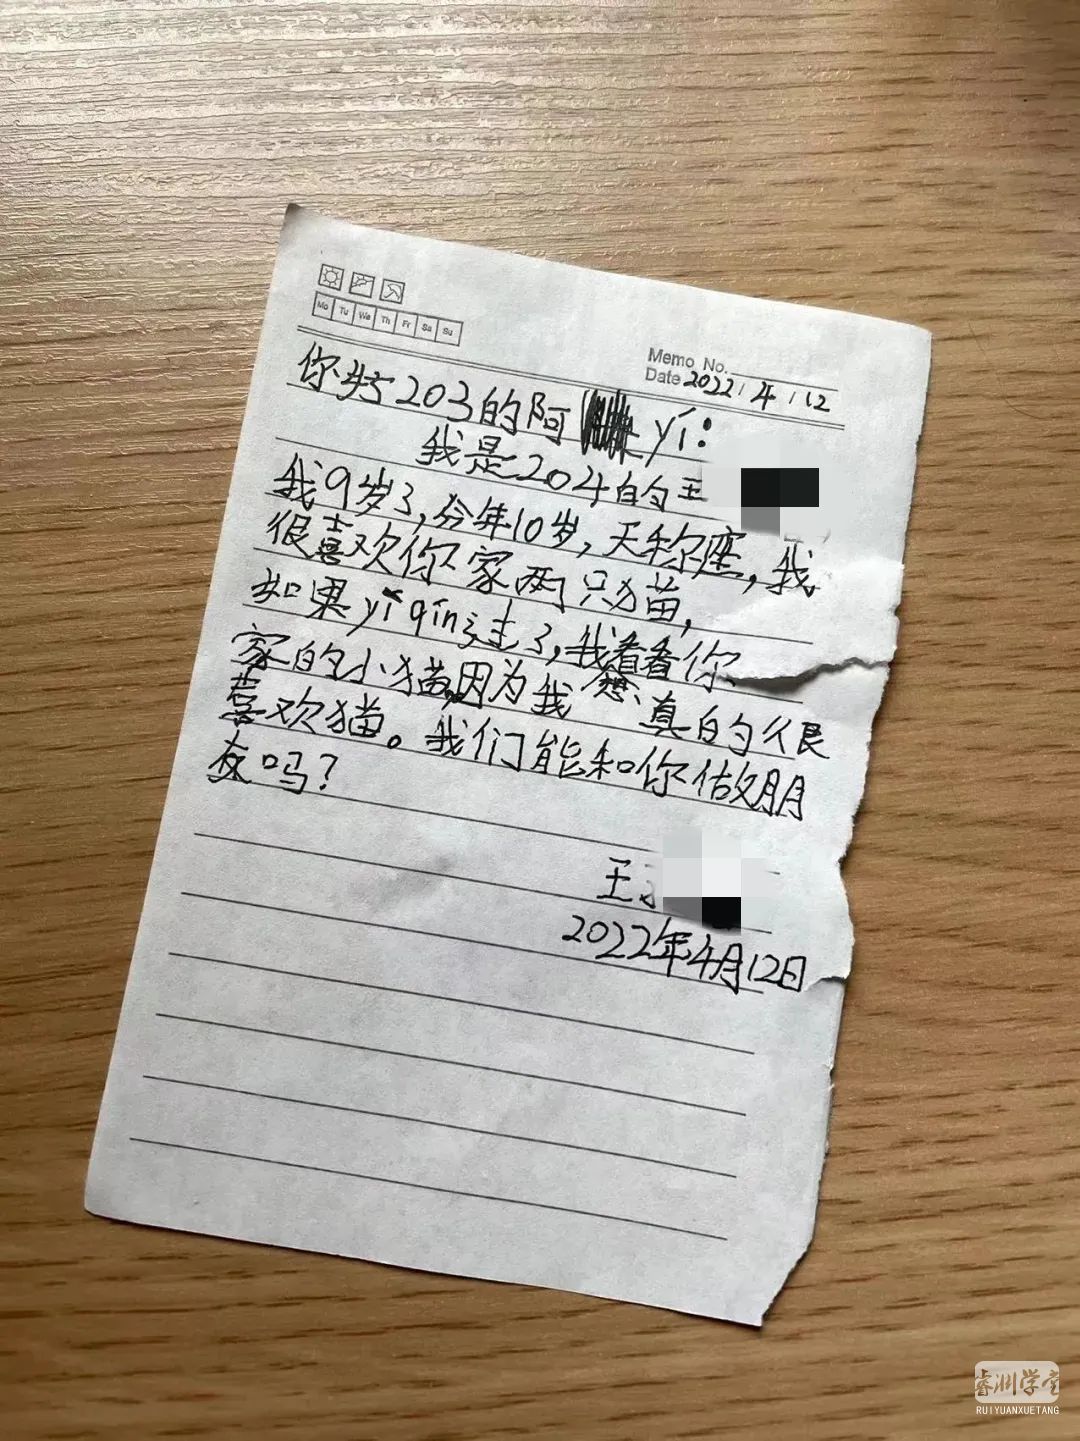 Mo Tu We Th Fr Sa Su
Memo No.
Date 2022 / 4 / 12
你好203的阿yí:
我是204的王
我9岁了,今年10岁,天秤座,我
很喜欢你家两只猫,
如果yì qíng走了,我想看看你
家的小猫,因为我真的很
喜欢猫。我们能和你做朋
友吗?
王
2022年4月12日
睿渊学堂
RUIYUANXUETANG